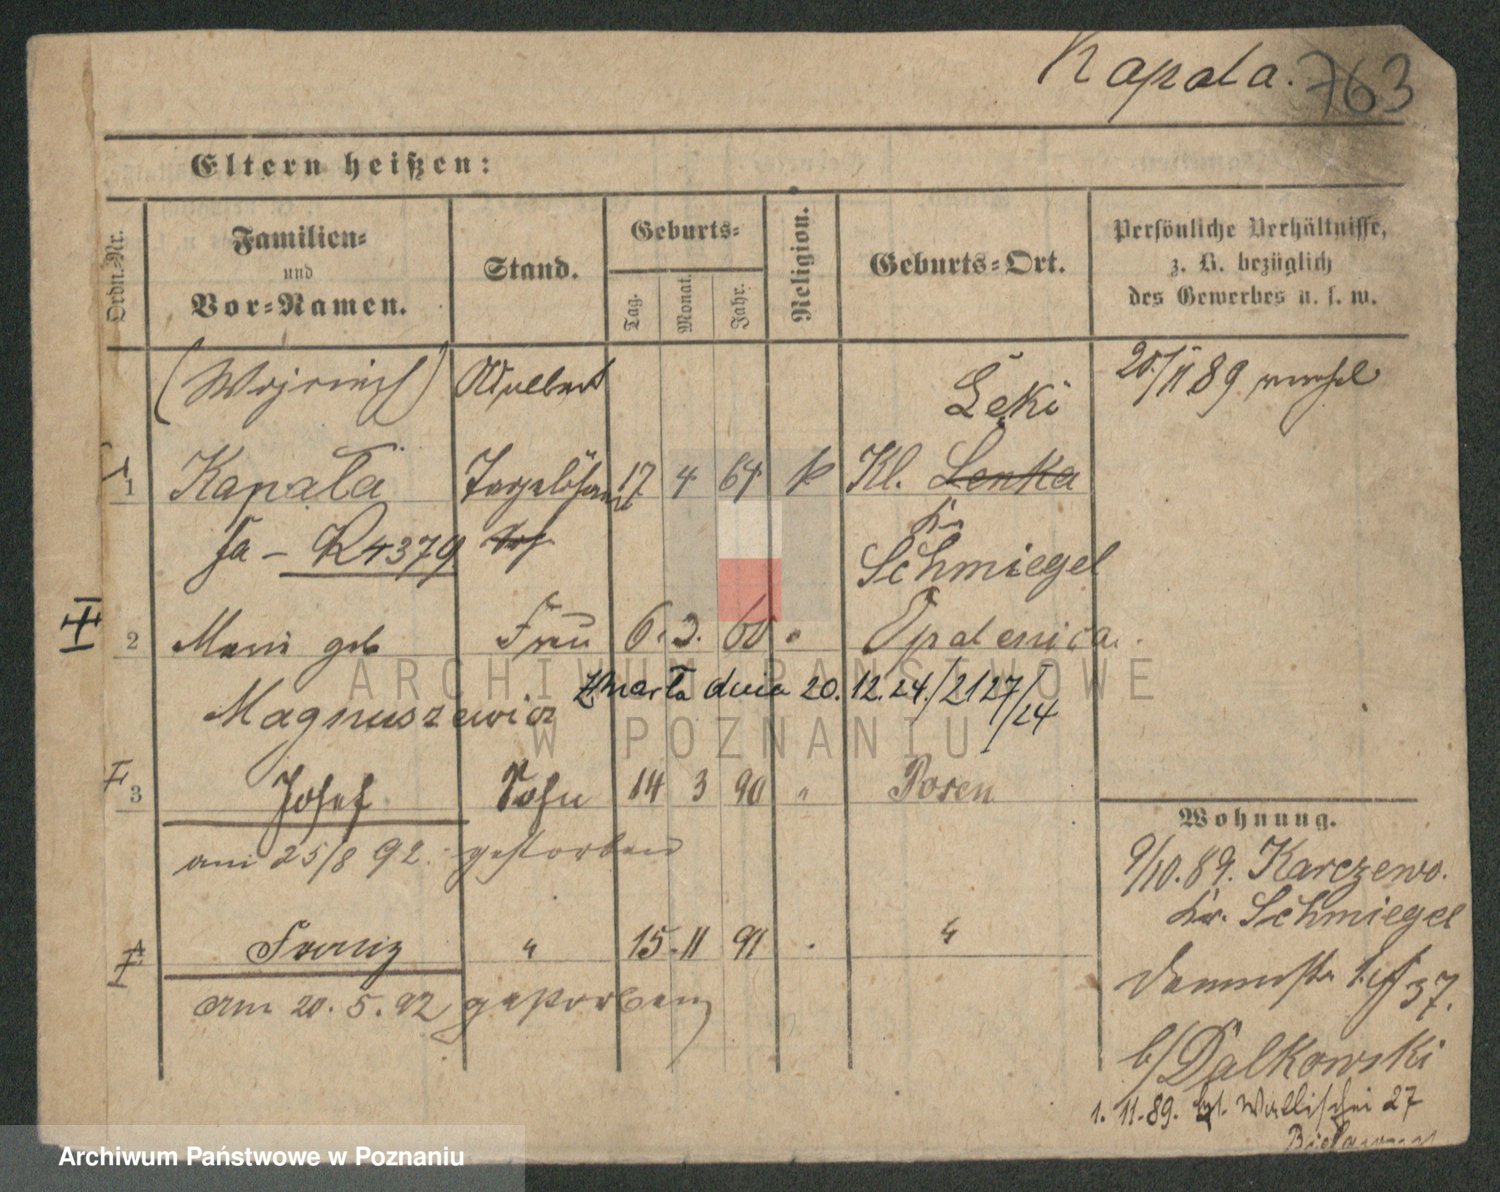 Kapala. 763
Eltern heißen:
Ordn.-Nr.
Familien-
und
Vor-Namen.
Stand.
Geburts-
Tag.
Monat.
Jahr.
Religion.
Geburts-Ort.
Persönliche Verhältnisse,
z. B. bezüglich
des Gewerbes u. s. w.
(Wojciech) Adalbert
Łęki
20/11 89
1 Kapała 17 4 64 k Kl. Lenka
Ja - R4379
Kr
Schmiegel
2 Marie geb Frau 6. 3. 60 " Opalenica.
zmarła dnia 20.12.24./2127/24
Magnuszewicz
3 Josef Sohn 14 3 90 " Posen
am 25/8 92. gestorben
4 Franz " 15 11 91 "
am 20.5.92 gestorben
Wohnung.
9/10.89. Karczewo.
Kr. Schmiegel
Dammstr 37.
b/ Dalkowski
1.11.89. Wallischei 27
ARCHIWUM PAŃSTWOWE
W POZNANIU
Archiwum Państwowe w Poznaniu